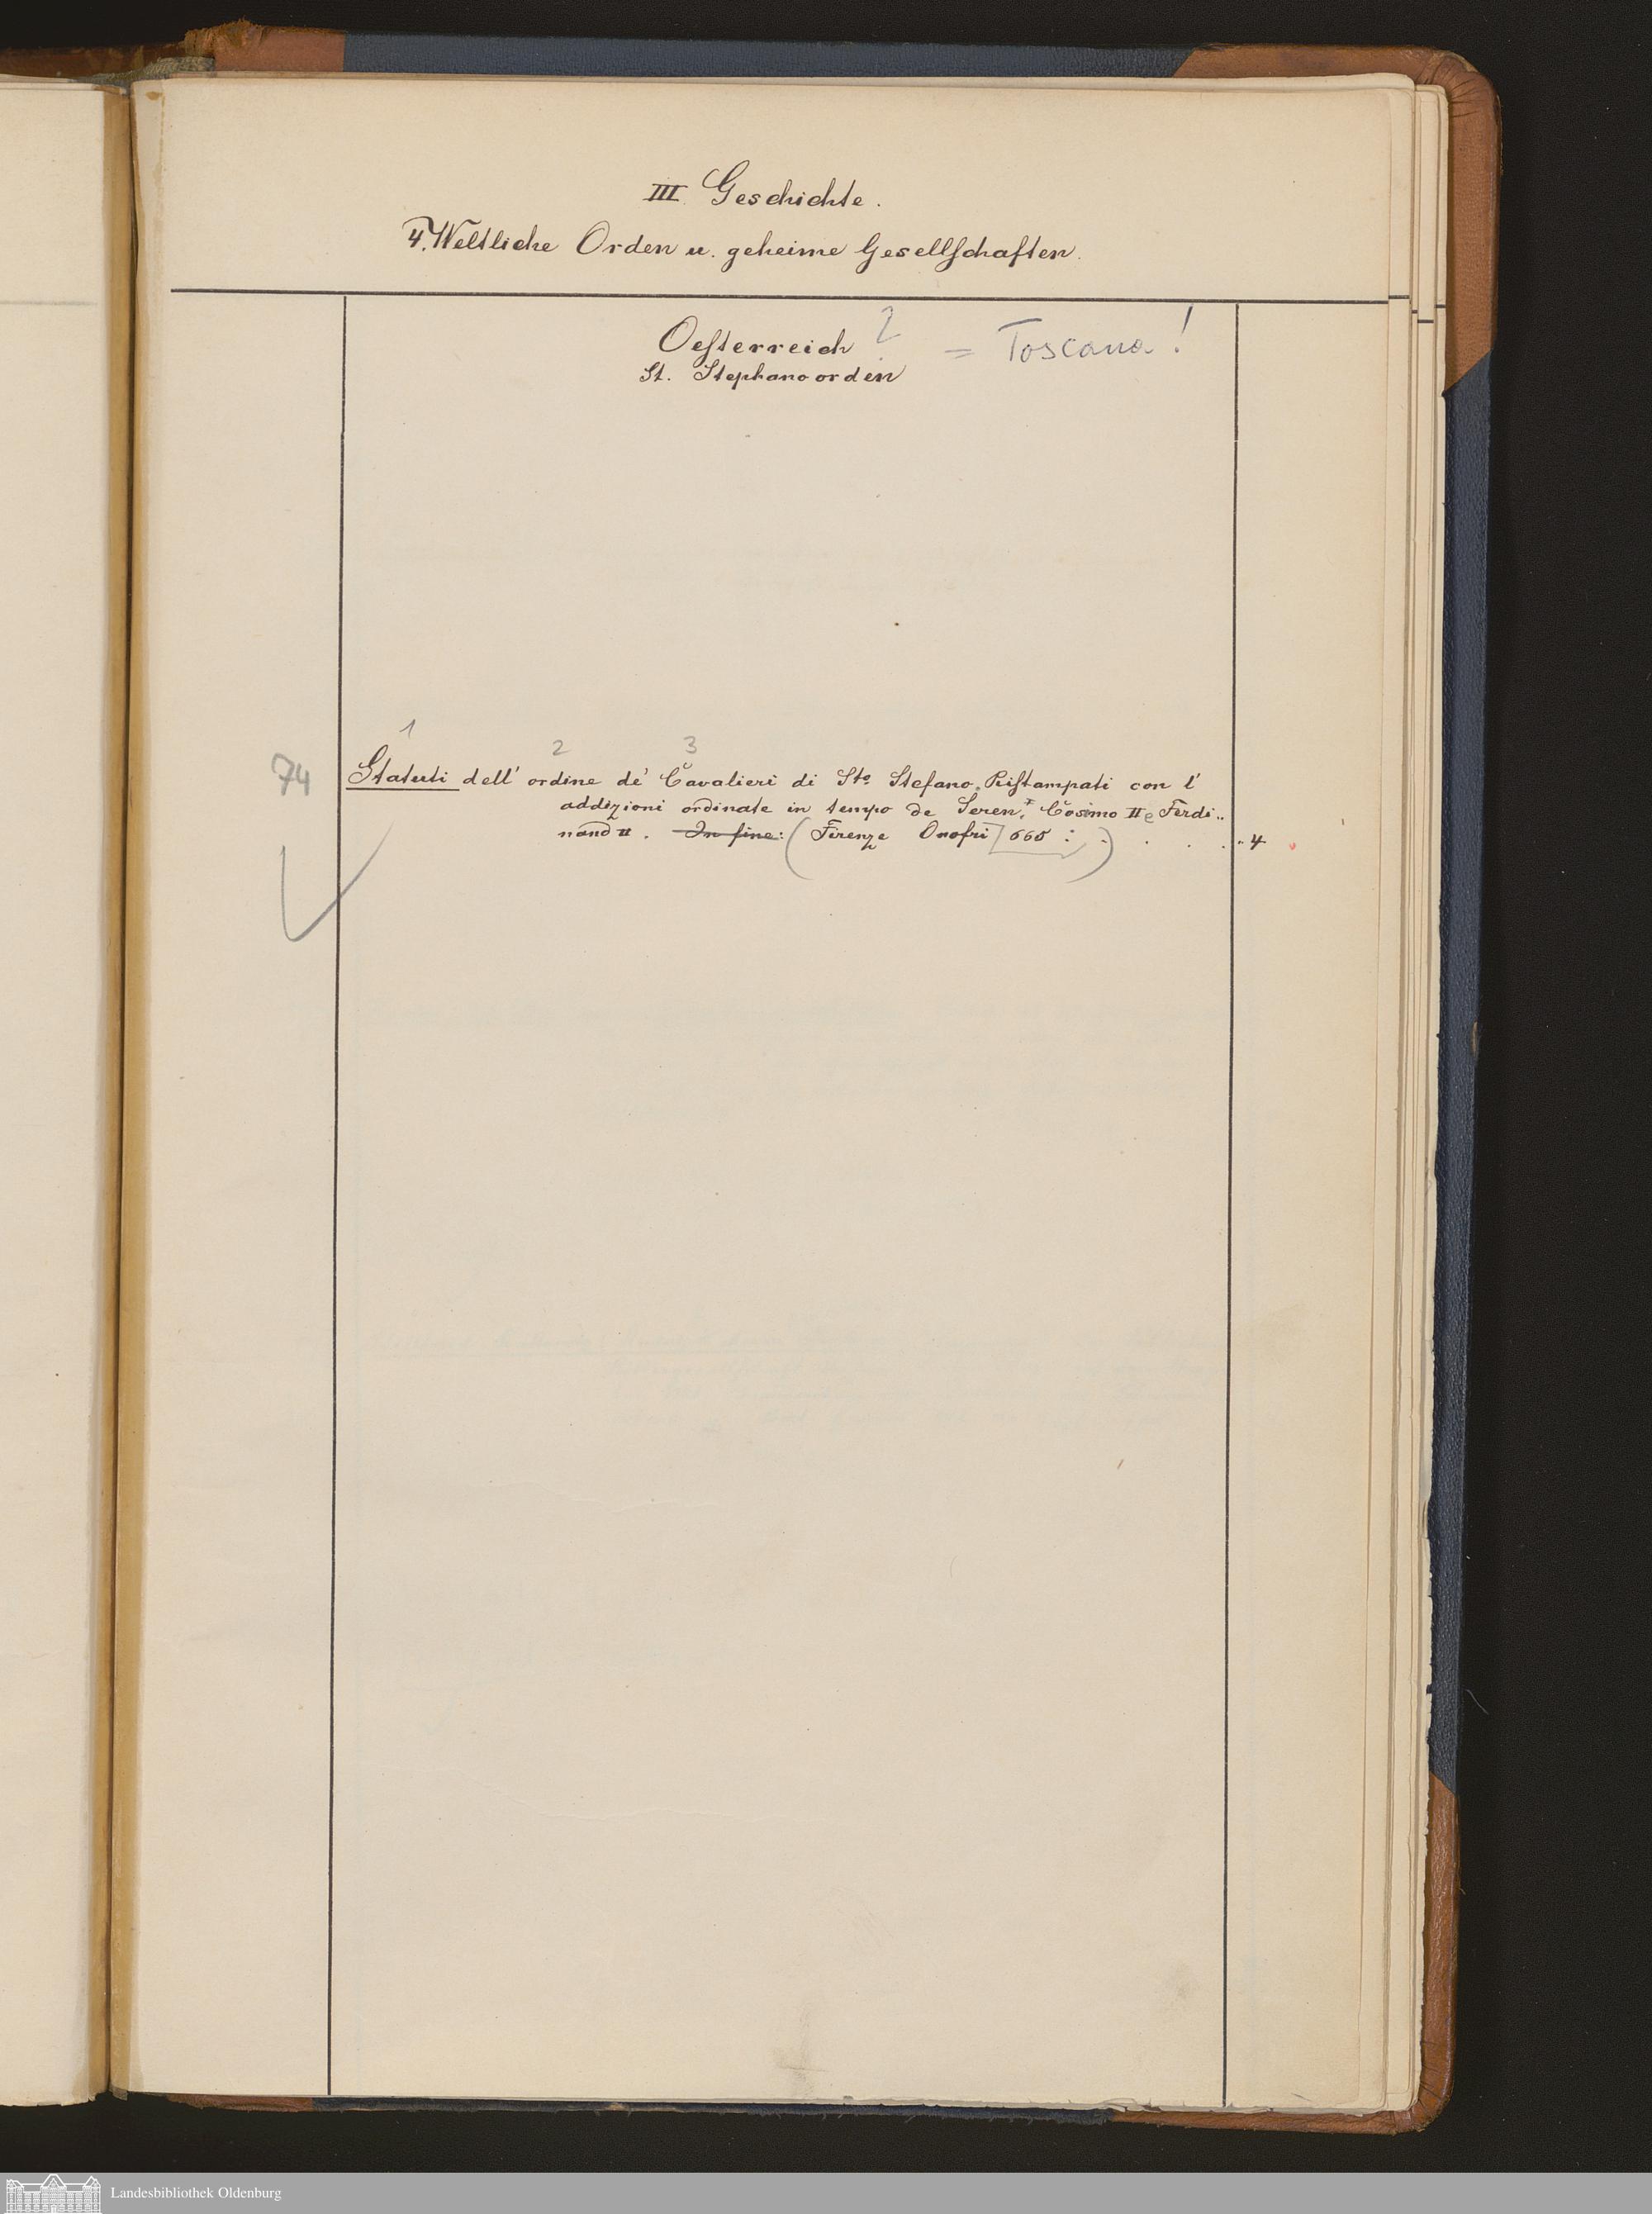 III Geschichte.
4. Weltliche Orden u. geheime Gesellschaften.
Oesterreich ? = Toscana!
St. Stephano orden
1 2 3
74 Statuti dell' ordine de' Cavalieri di Sto Stefano. Ristampati con l'
addizioni ordinate in tempo de Seren. Cosimo II e Ferdi..
nand II. In fine: (Firenze Onofri] 665 : . ) . . . . 4
Landesbibliothek Oldenburg